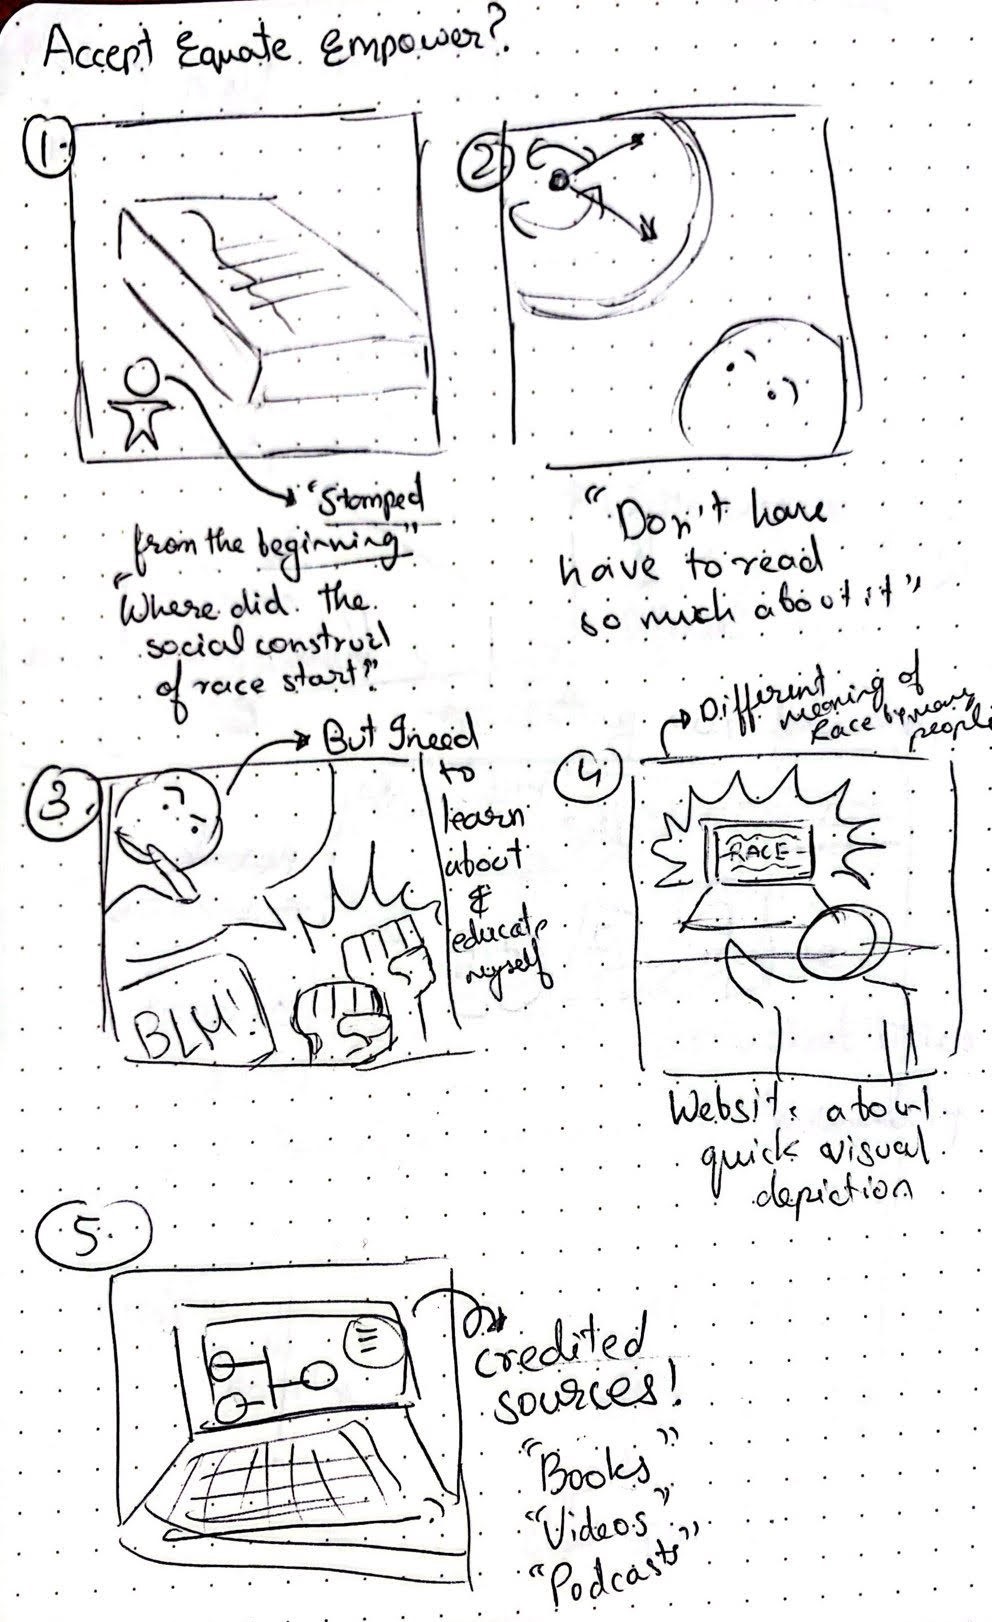 Accept Equate Empower?
1.
"Stamped
from the beginning"
"Where did the
social construct
of race start?"
2
"Don't have
have to read
so much about it"
3
But I need
to
learn
about
&
educate
myself
BLM!
4
Different
meaning of
Race by many
people
RACE
Website about
quick visual
depiction
5.
credited
sources!
"Books"
"Videos"
"Podcasts"